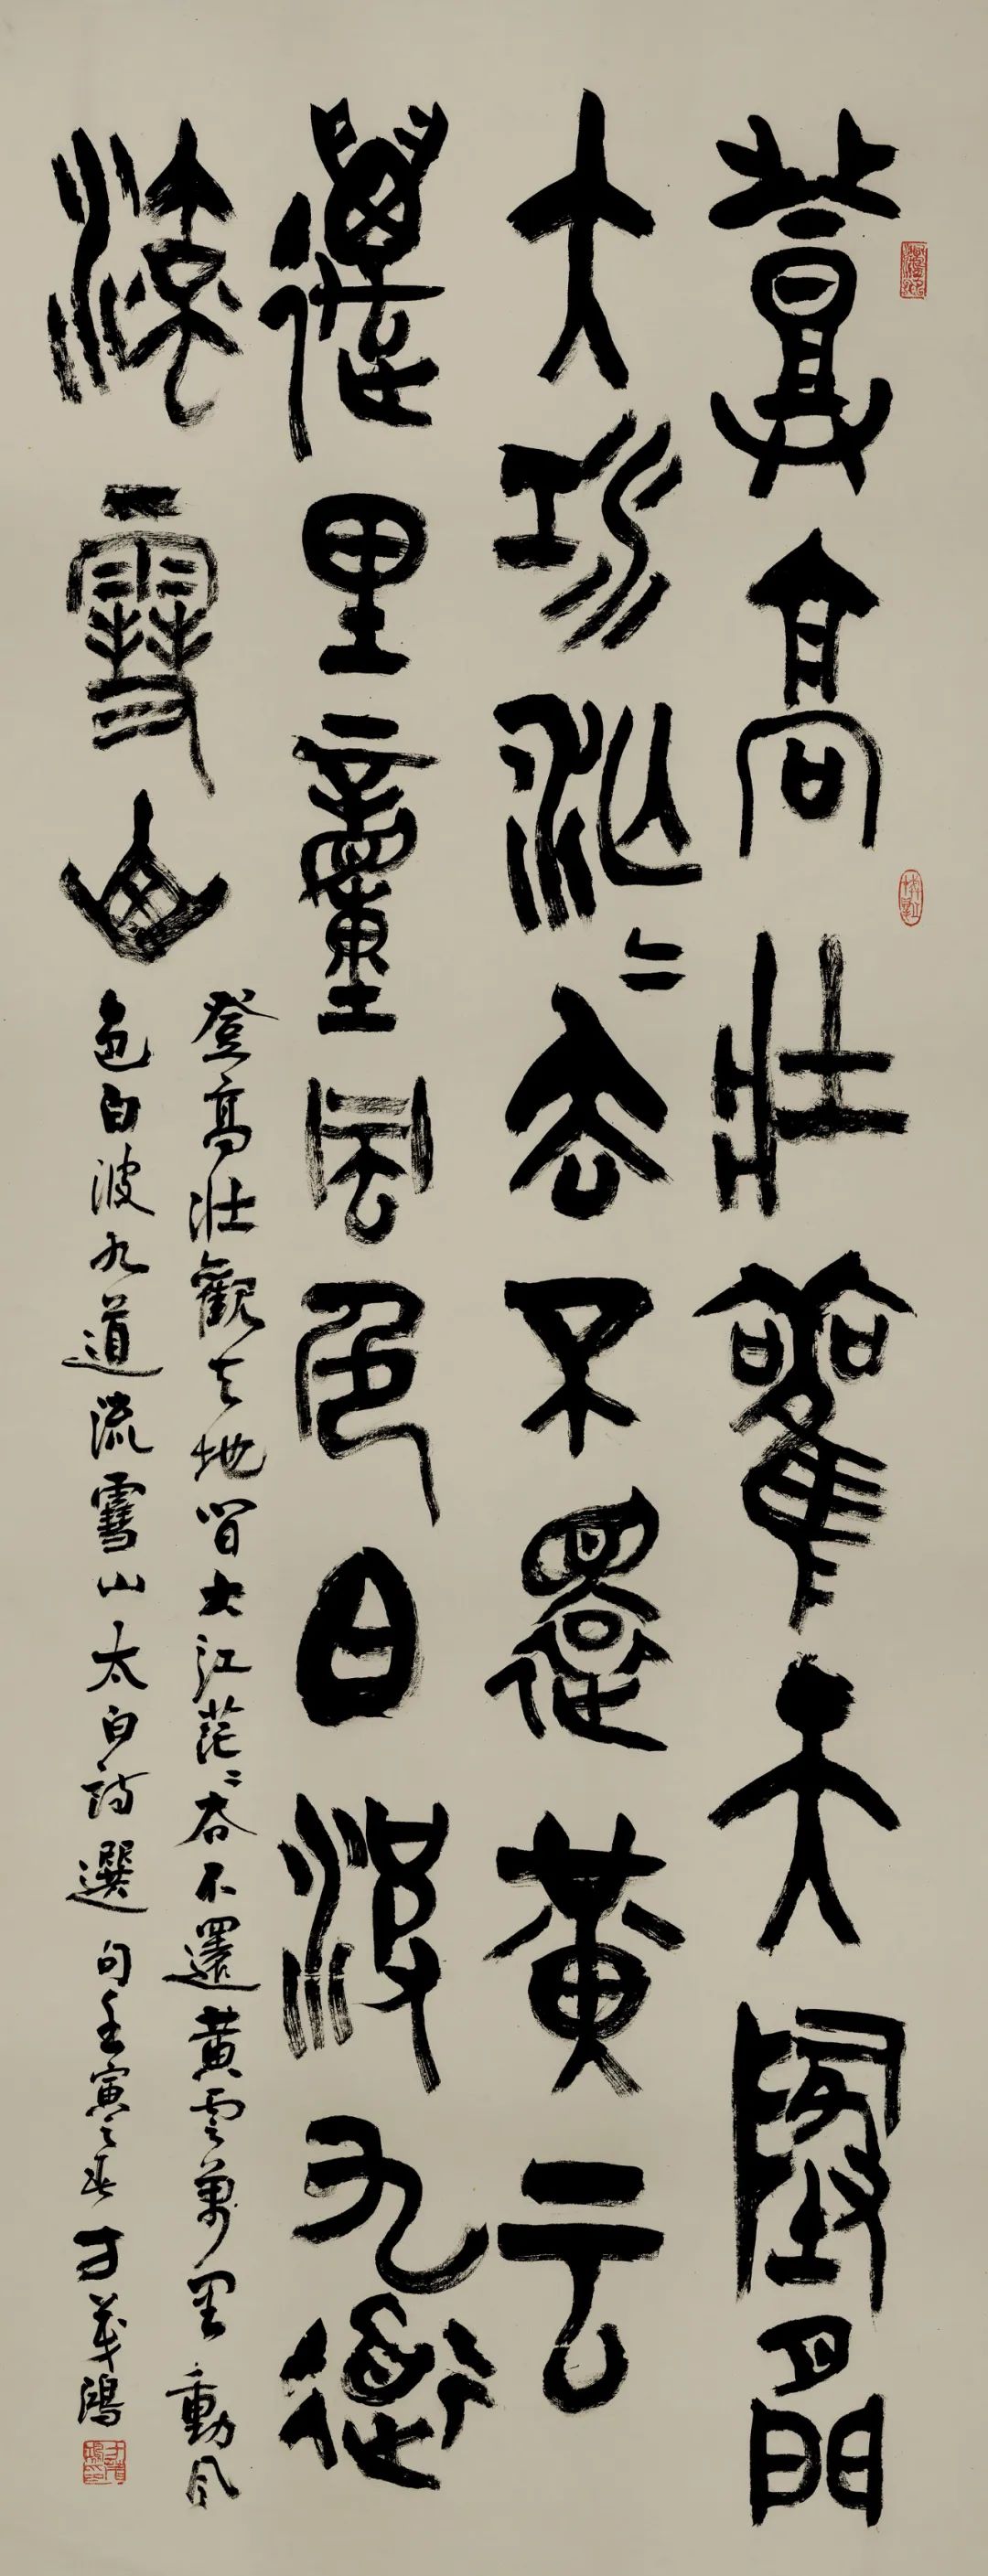 登高壯觀天地間
大江茫〻去不還黃云
萬里動風色白波九道
流雪山
登高壯觀天地間大江茫〻去不還黃雲萬里動風
色白波九道流雪山太白詩選句壬寅之春方義鴻